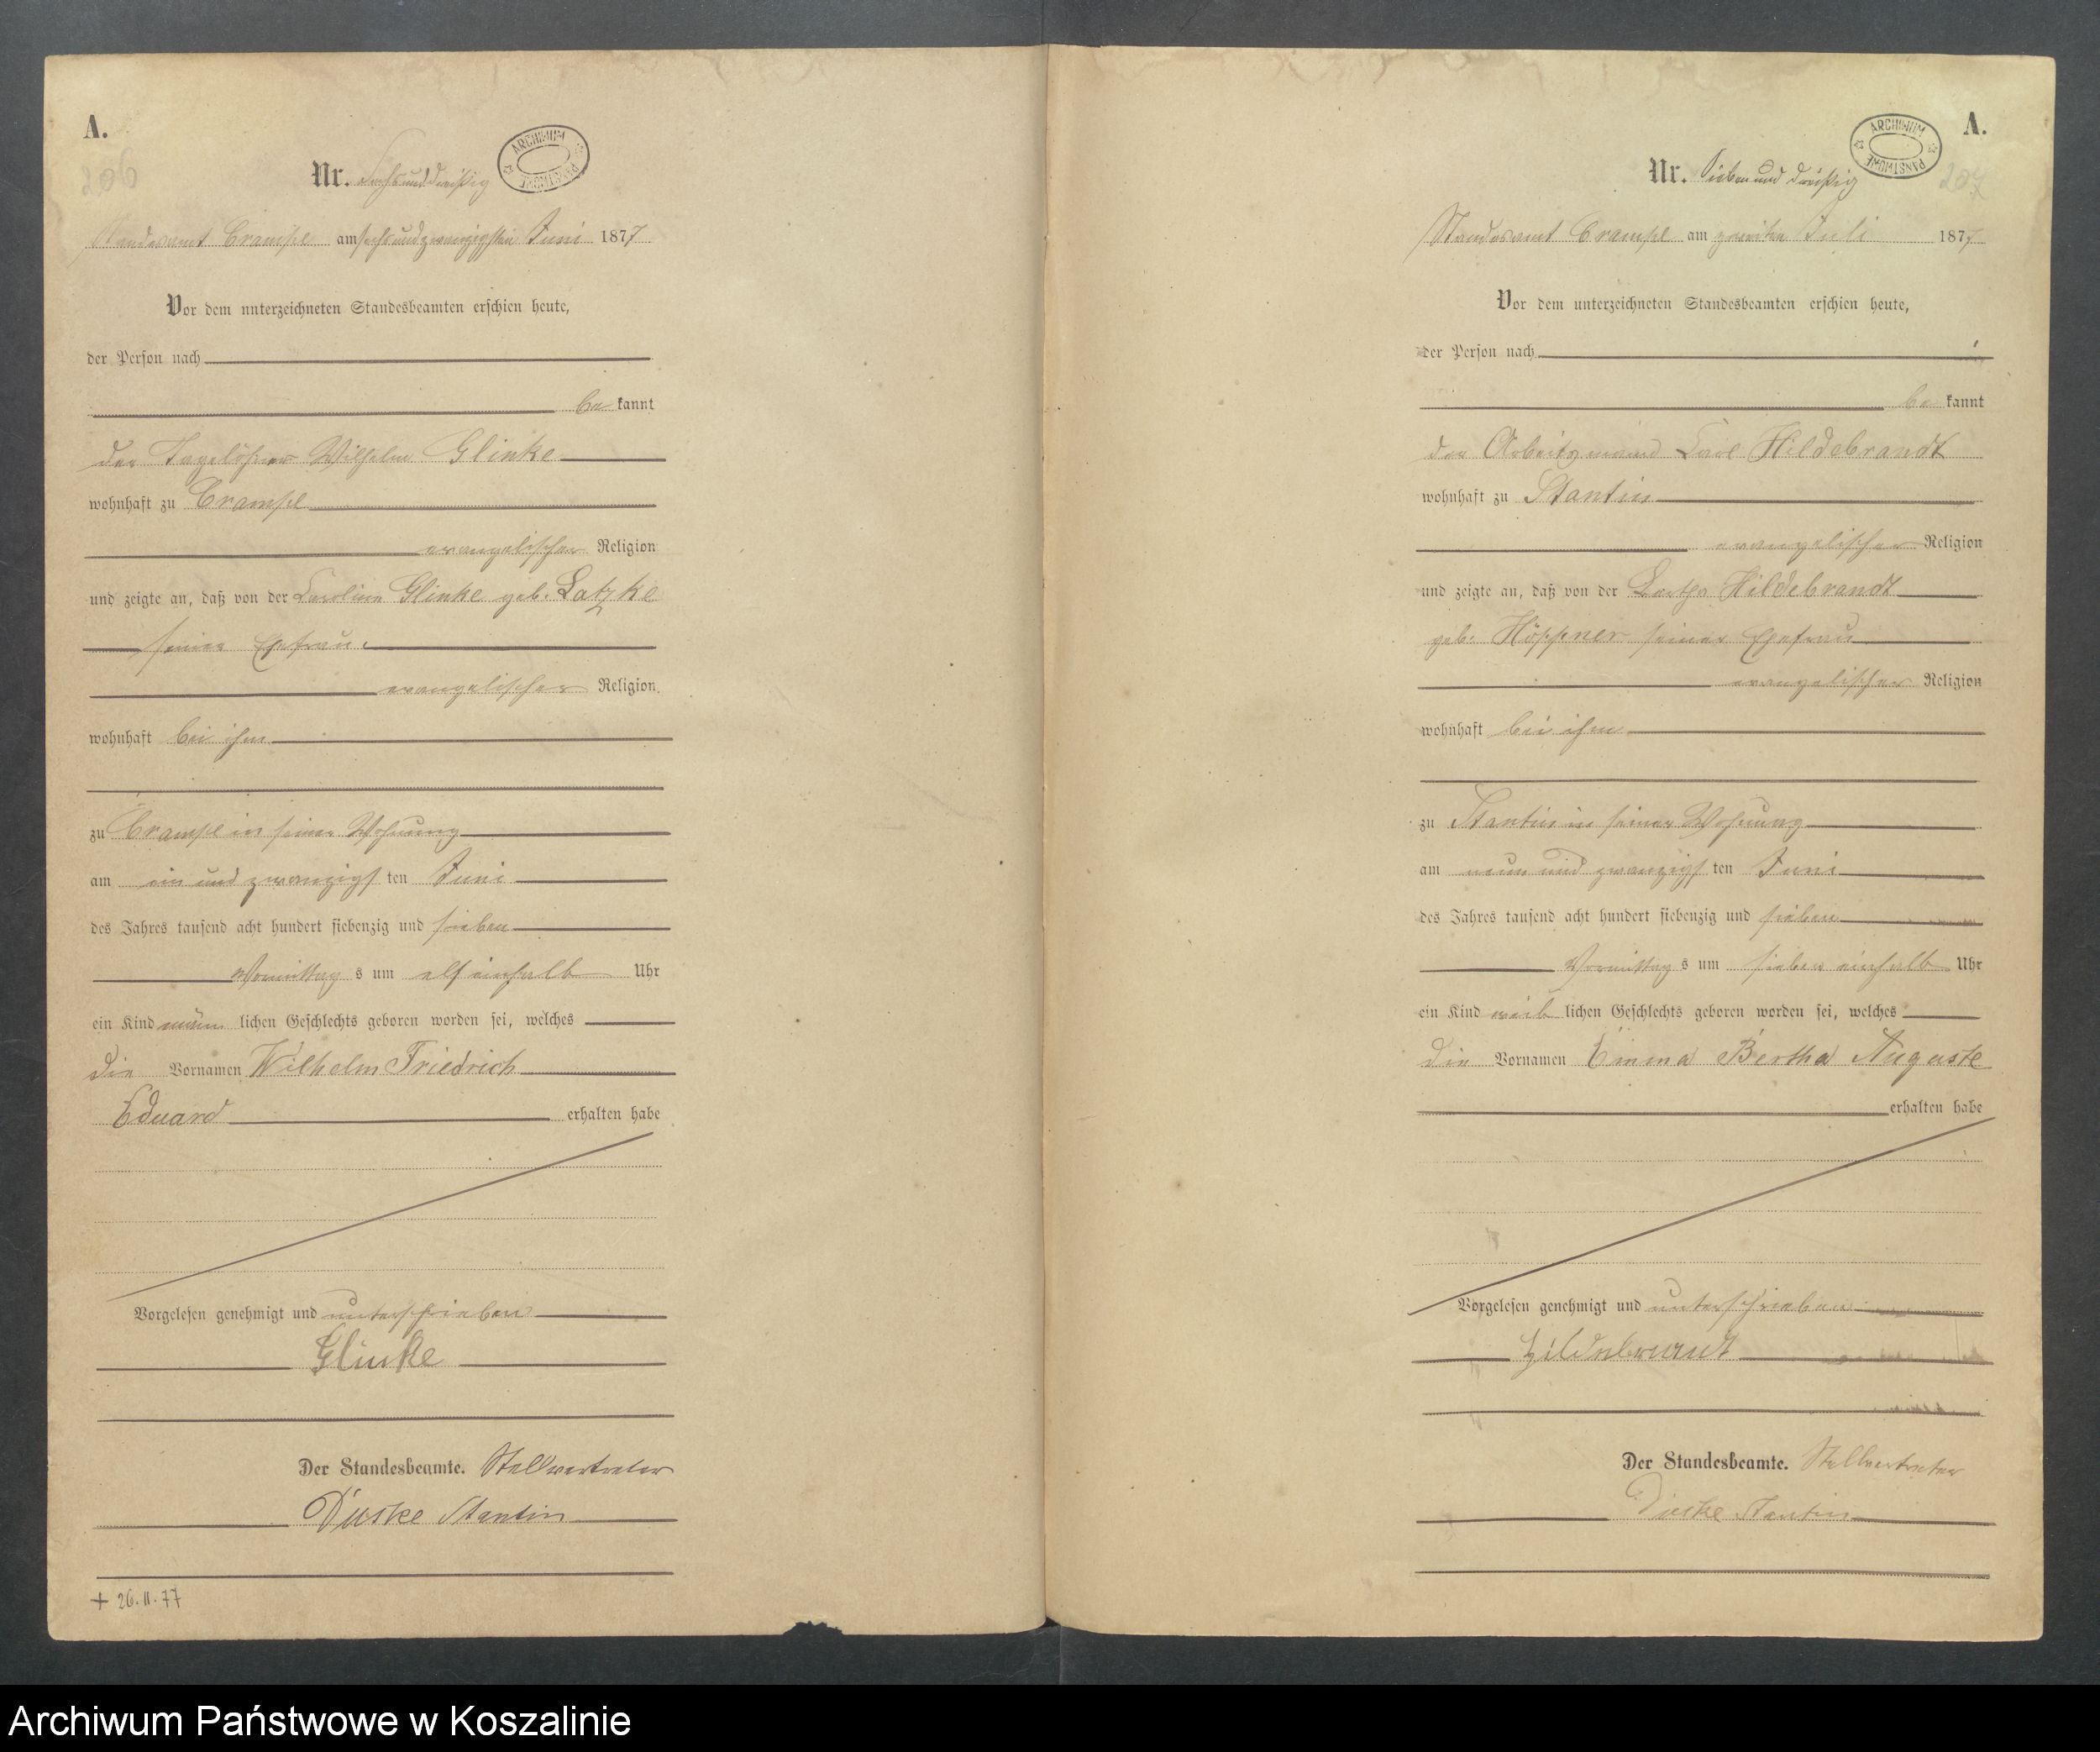 A.
206
Nr. Sechsunddreißig
ARCHIWUM PAŃSTWOWE
Standesamt Crampe am sechsundzwanzigsten Juni 1877
Vor dem unterzeichneten Standesbeamten erschien heute,
der Person nach
be kannt
der Tagelöhner Wilhelm Glinke
wohnhaft zu Crampe
evangelischer Religion
und zeigte an, daß von der Caroline Glinke geb. Latzke
seiner Ehefrau
evangelischer Religion,
wohnhaft bei ihm
zu Crampe in seiner Wohnung
am ein und zwanzigs ten Juni
des Jahres tausend acht hundert siebenzig und sieben
Vormittag s um elf einhalb Uhr
ein Kind männ lichen Geschlechts geboren worden sei, welches
die Vornamen Wilhelm Friedrich
Eduard erhalten habe
Vorgelesen genehmigt und unterschrieben
Glinke
Der Standesbeamte. Stellvertreter
Stantin
+ 26.11.77
A.
207
Nr. Sieben und dreißig
ARCHIWUM PAŃSTWOWE
Standesamt Crampe am zweiten Juli 1877
Vor dem unterzeichneten Standesbeamten erschien heute,
der Person nach
be kannt
der Arbeitsmann Carl Hildebrandt
wohnhaft zu Stantin
evangelischer Religion
und zeigte an, daß von der Hildebrandt
geb. Höppner seiner Ehefrau
evangelischer Religion
wohnhaft bei ihm
zu Stantin in seiner Wohnung
am neun und zwanzigs ten Juni
des Jahres tausend acht hundert siebenzig und sieben
Vormittag s um sieben einhalb Uhr
ein Kind weib lichen Geschlechts geboren worden sei, welches
die Vornamen Emma Bertha Auguste
erhalten habe
Vorgelesen genehmigt und unterschrieben
Hildebrandt
Der Standesbeamte. Stellvertreter
Stantin
Archiwum Państwowe w Koszalinie